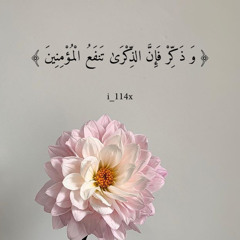 ﴿ وَ ذَكِّرْ فَإِنَّ الذِّكْرَىٰ تَنفَعُ الْمُؤْمِنِينَ ﴾
i_114x